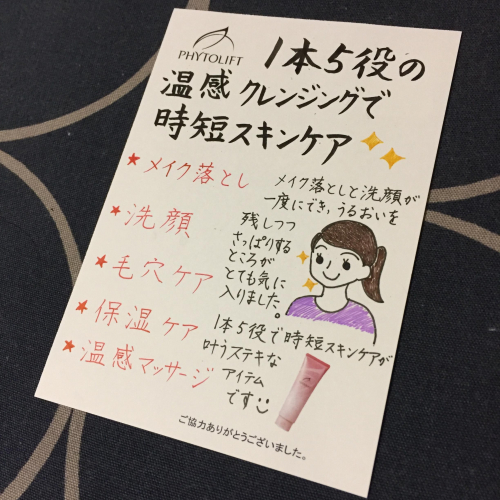 PHYTOLIFT
1本5役の
温感クレンジングで
時短スキンケア
★メイク落とし
★洗顔
★毛穴ケア
★保湿ケア
★温感マッサージ
メイク落としと洗顔が
一度にでき、うるおいを
残しつつ
さっぱりする
ところが
とても気に
入りました。
1本5役で時短スキンケアが
叶うステキな
アイテム
です
ご協力ありがとうございました。